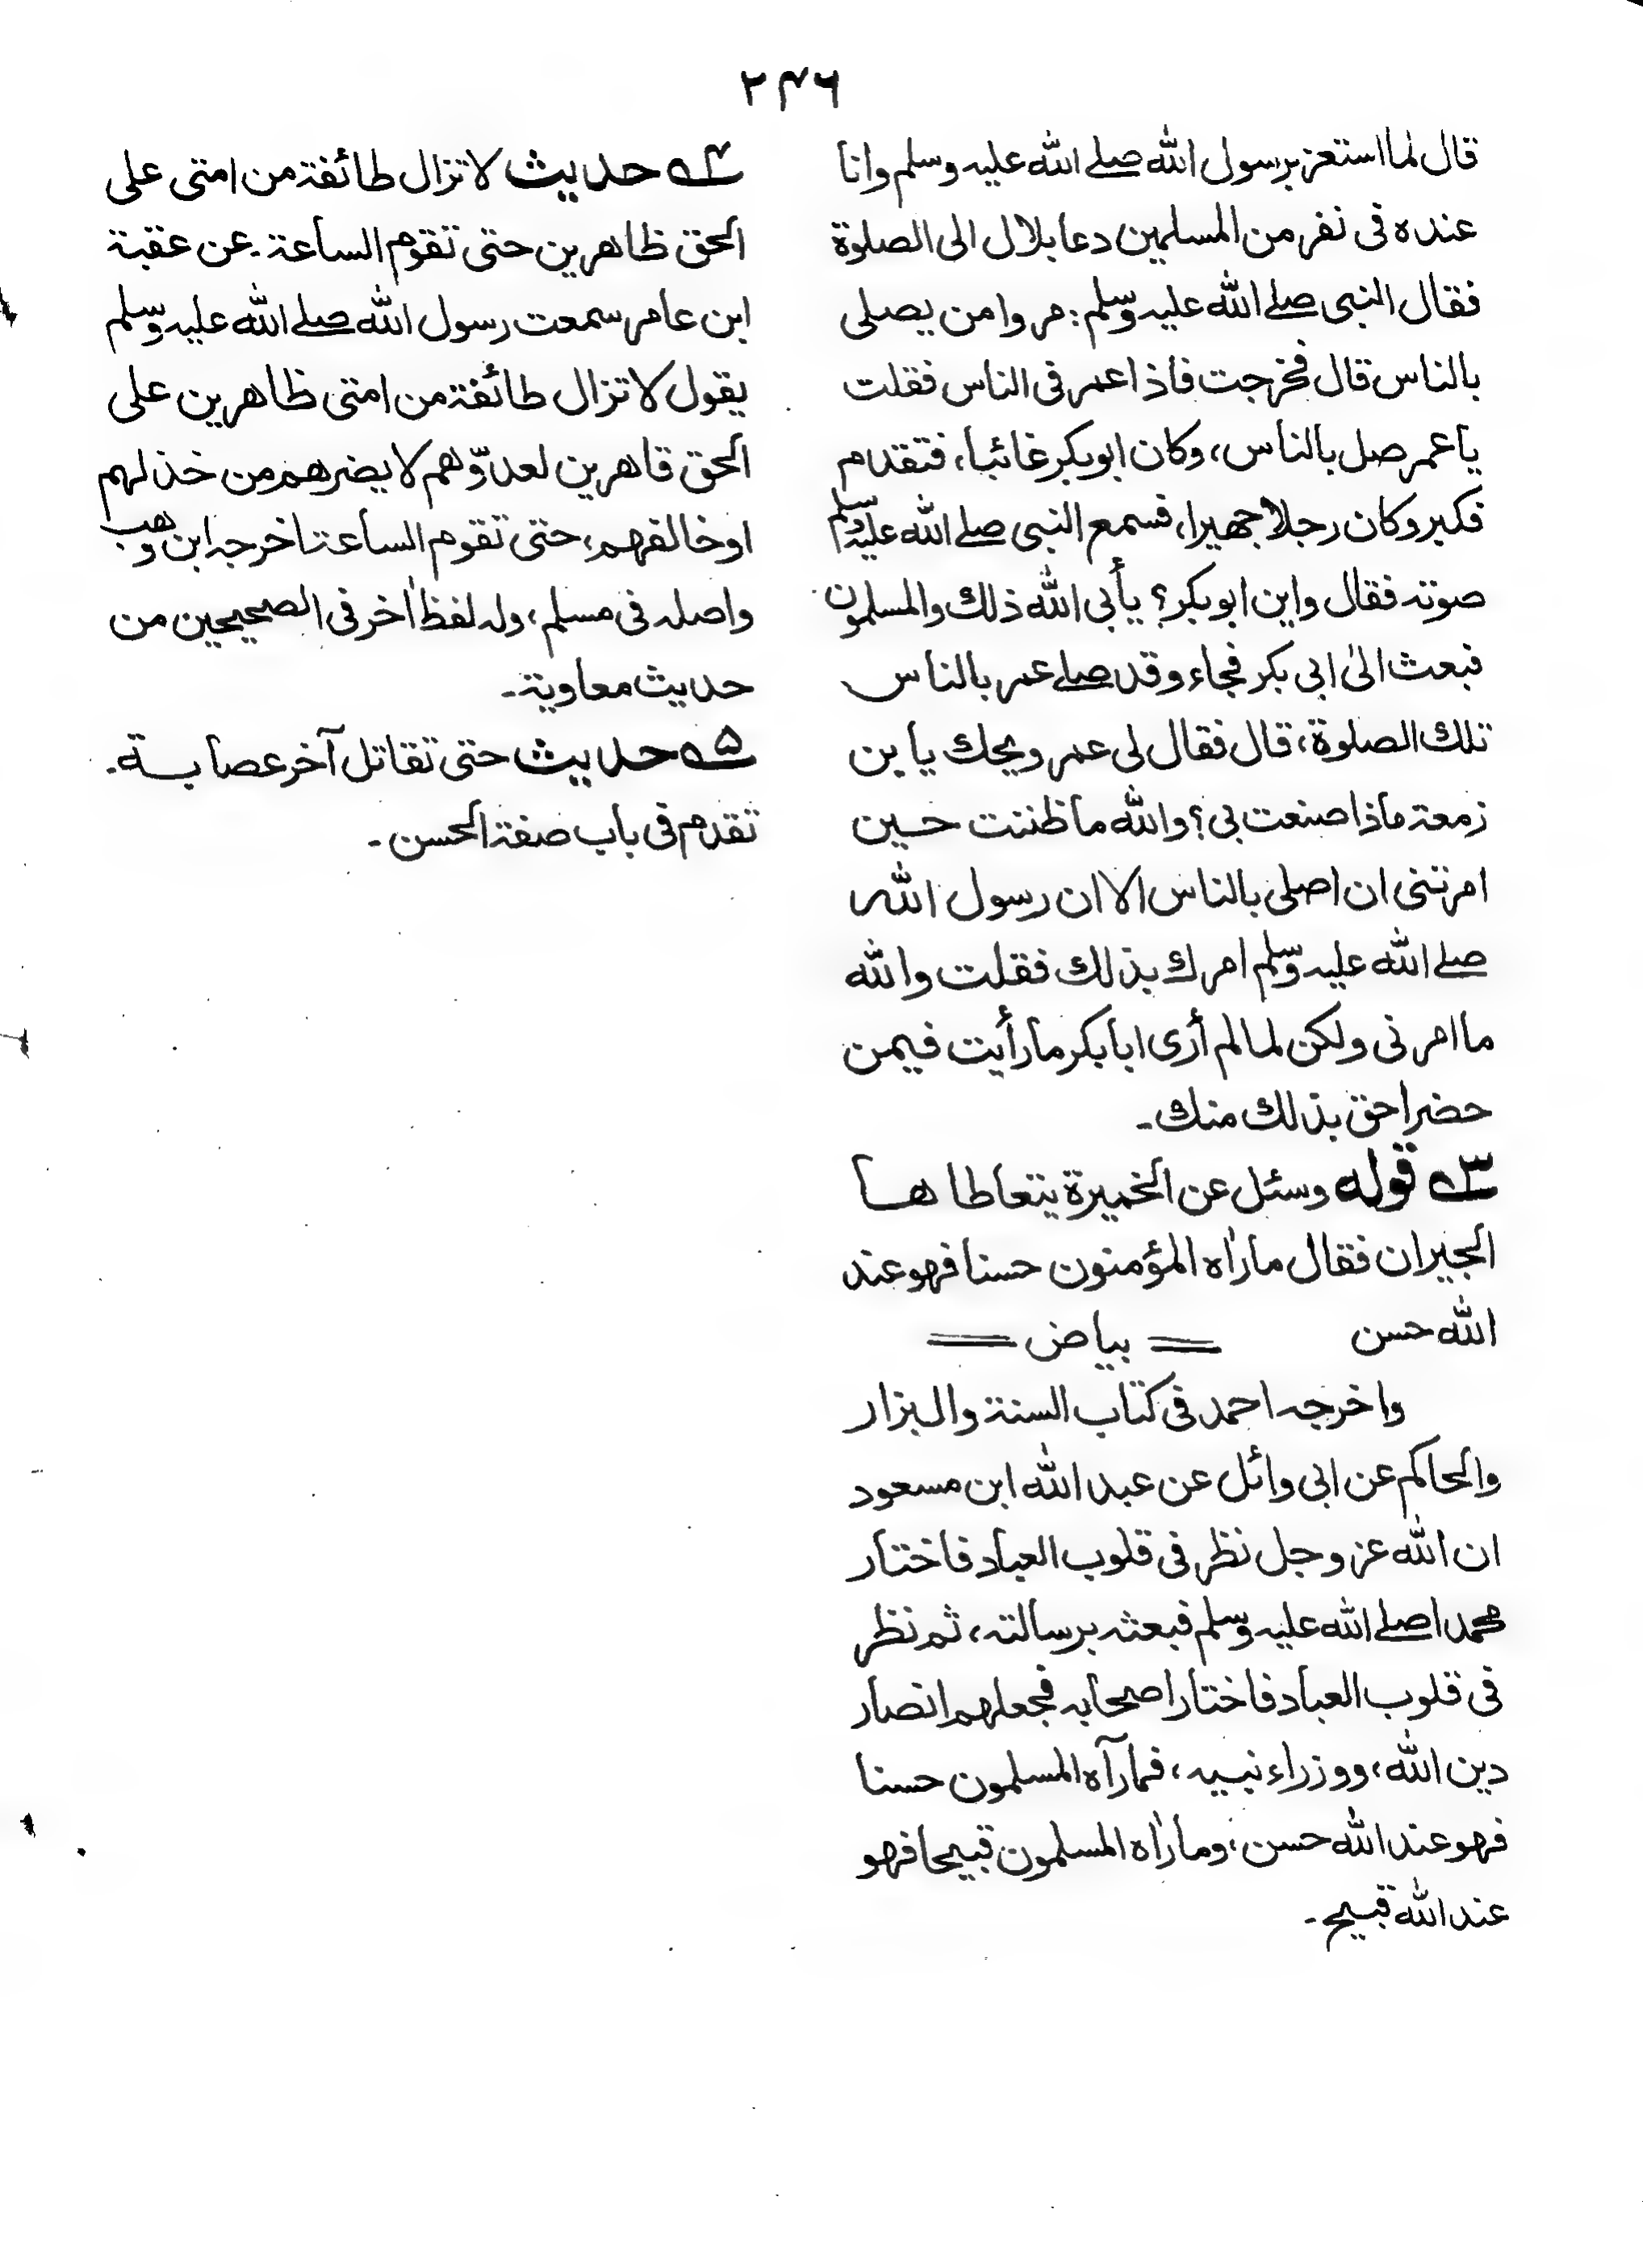 ۲۴۶
قال لما استعز برسول الله صلے الله علیہ وسلم وانا
عنده فی نفر من المسلمین دعا بلال الی الصلوة
فقال النبی صلے الله علیہ وسلم: مروا من یصلی
بالناس قال فخرجت فاذا عمر فی الناس فقلت
یا عمر صل بالناس، وکان ابوبکر غائبا، فتقدم
فکبر وکان رجلا جهیرا، فسمع النبی صلے الله علیہ وسلم
صوتہ فقال واین ابوبکر؟ یأبی الله ذلك والمسلمون
فبعث الیٰ ابی بکر فجاء وقد صلے عمر بالناس
تلك الصلوة، قال فقال لی عمر ویحك یا بن
زمعۃ ماذا صنعت بی؟ والله ما ظننت حین
امرتنی ان اصلی بالناس الا ان رسول الله
صلے الله علیہ وسلم امرك بذلك فقلت والله
ما امرنی ولکن لما لم أرٰی ابا بکر ما رأیت فیمن
حضر احق بذلك منك۔
۳ قوله وسئل عن الخمیرة یتعاطاها
الجیران فقال ما رأٰه المؤمنون حسنا فهو عند
الله حسن == بیاض ==
واخرجہ احمد فی کتاب السنۃ والبزار
والحاکم عن ابی وائل عن عبد الله ابن مسعود
ان الله عز وجل نظر فی قلوب العباد فاختار
محمدا صلے الله علیہ وسلم فبعثہ برسالتہ، ثم نظر
فی قلوب العباد فاختار اصحابہ فجعلهم انصار
دین الله، ووزراء نبیہ، فما رآه المسلمون حسنا
فهو عند الله حسن، وما رأٰه المسلمون قبیحا فهو
عند الله قبیح۔
۴ حدیث لا تزال طائفۃ من امتی علی
الحق ظاهرین حتی تقوم الساعۃ۔ عن عقبۃ
ابن عامر سمعت رسول الله صلے الله علیہ وسلم
یقول لا تزال طائفۃ من امتی ظاهرین علی
الحق قاهرین لعدوّهم لا یضرهم من خذلهم
او خالفهم، حتی تقوم الساعۃ اخرجہ ابن وهب
واصلہ فی مسلم، ولہ لفظ اٰخر فی الصحیحین من
حدیث معاویۃ۔
۵ حدیث حتی تقاتل آخر عصابة۔
تقدم فی باب صفۃ الحسن۔